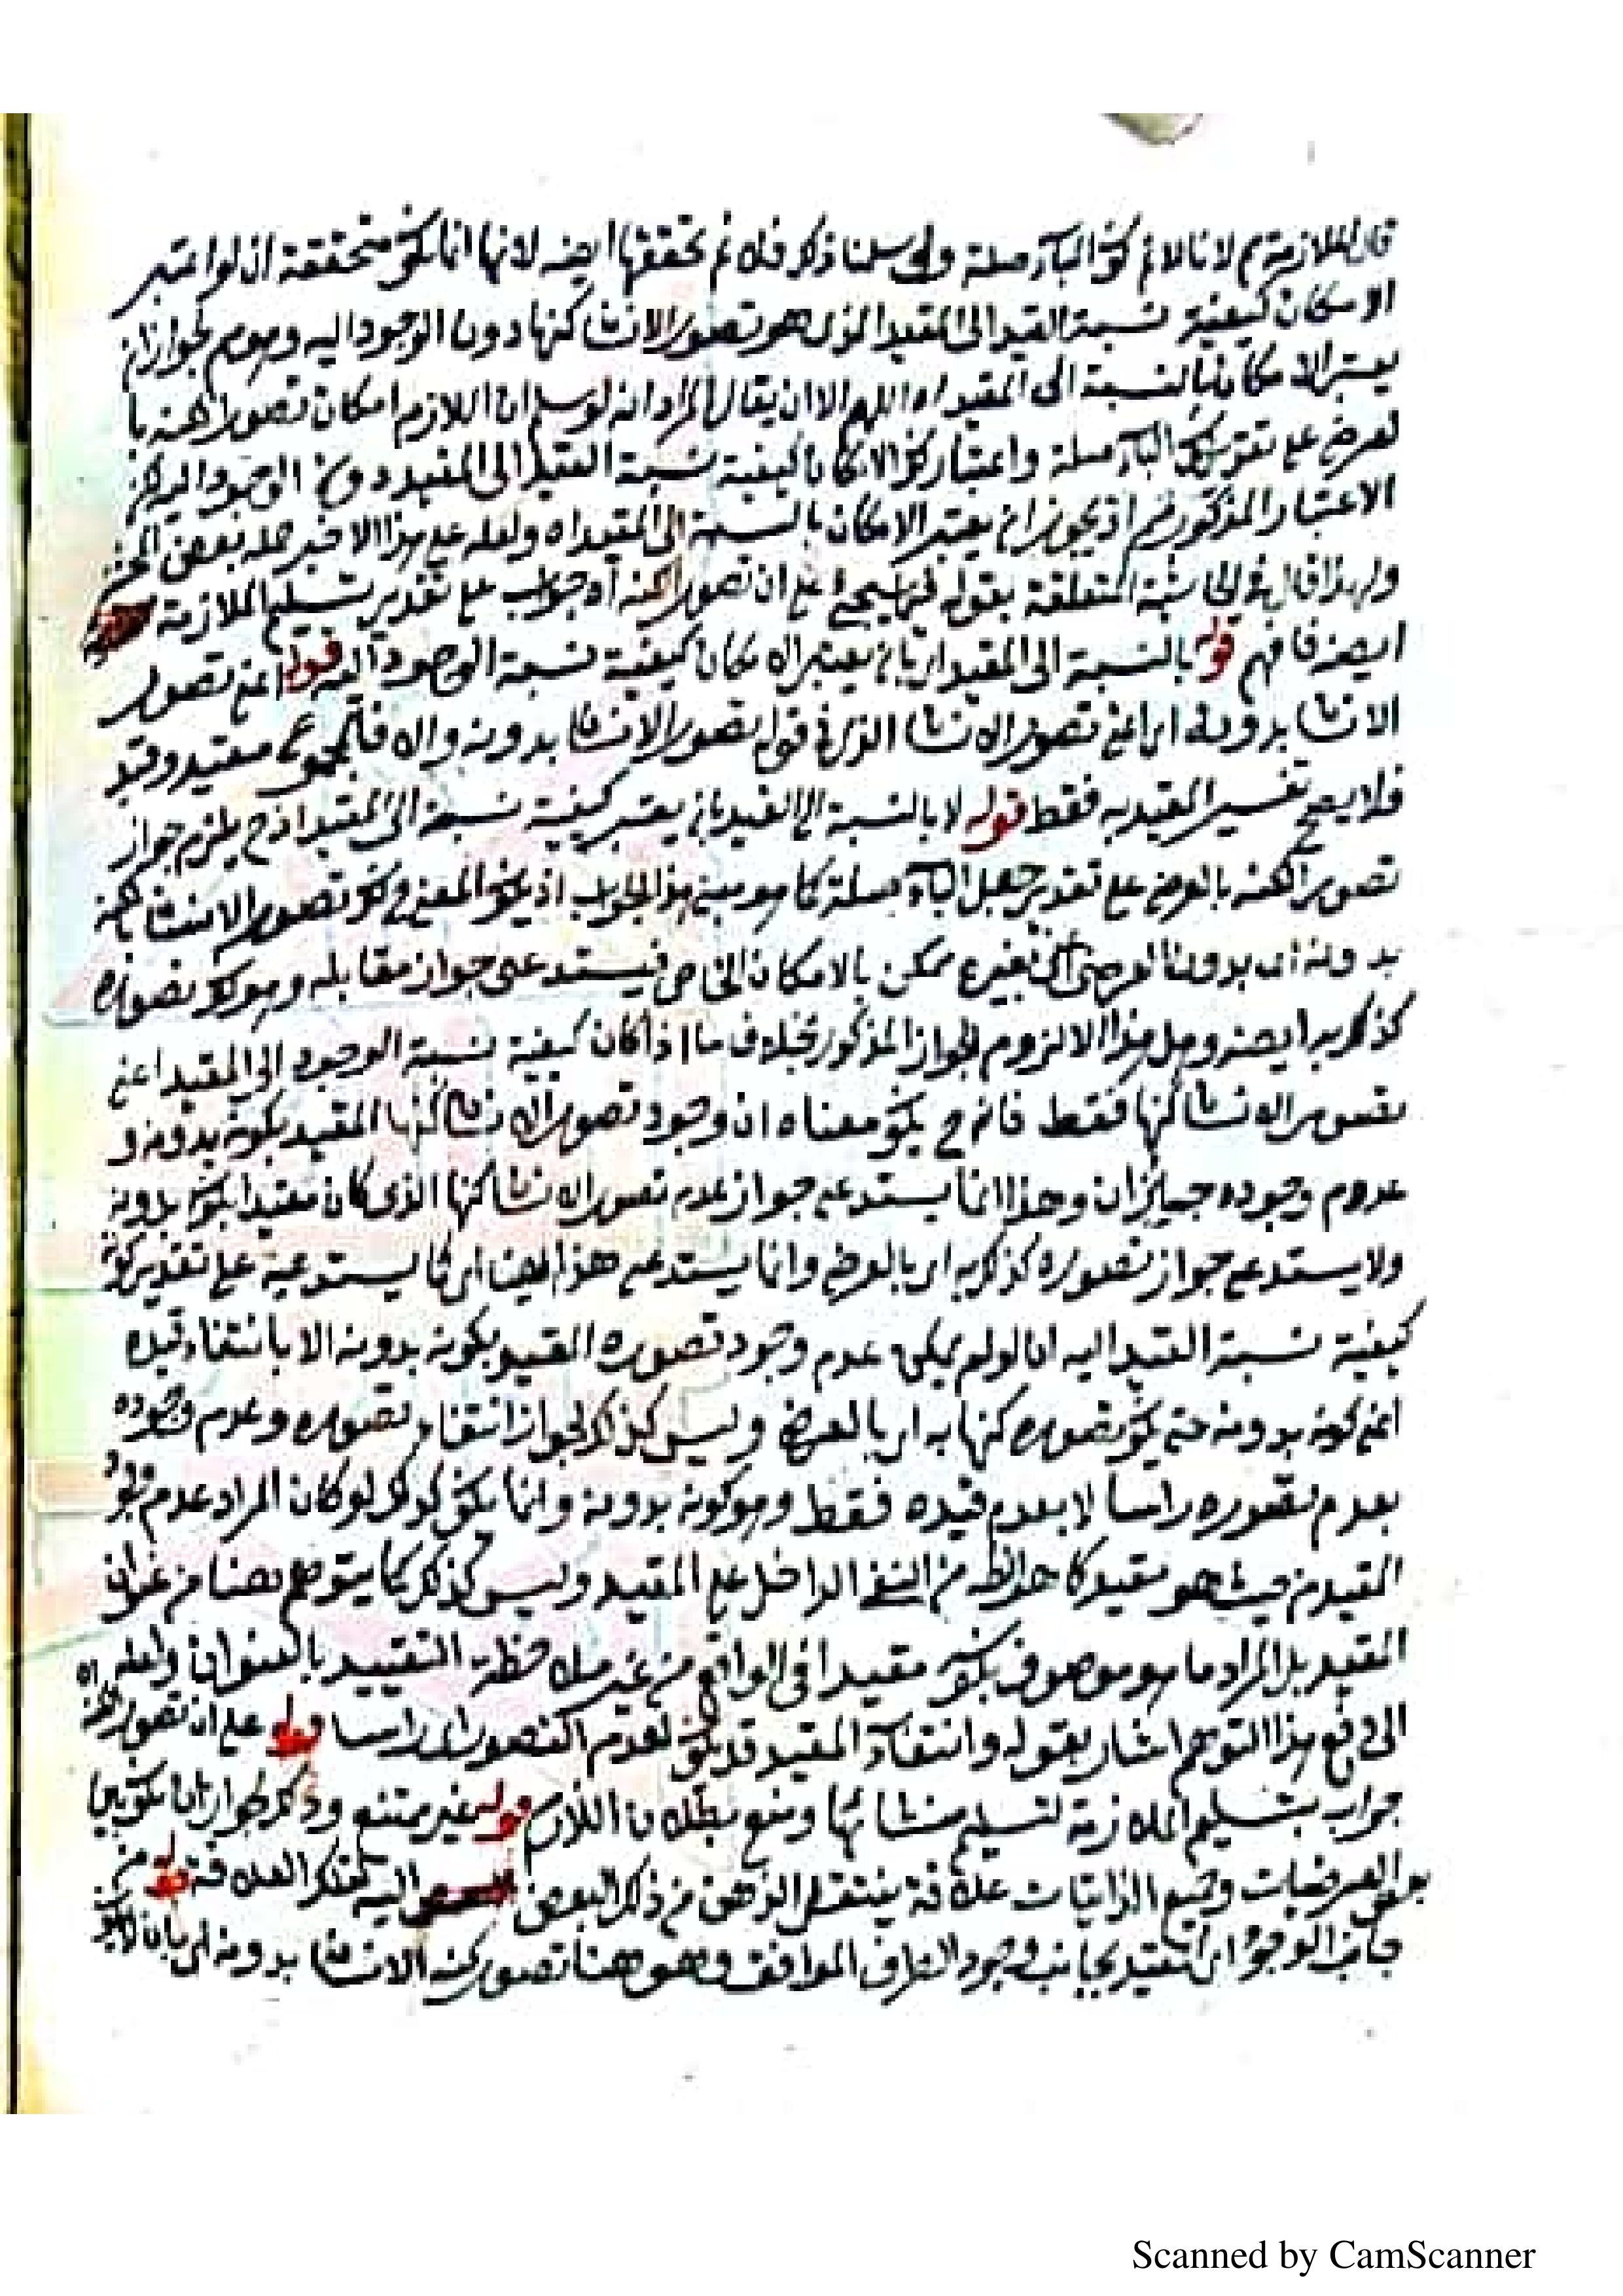 فالملازمة مم لانا لانم كون الباء صلة ولو سلمنا ذكر فلا نم تحققها ايضه لانها انما يكون متحققة ان لو اعتبر
الامكان كيفية نسبة القيد الى المقيد الذى هو تصور الانسان كنها دون الوجود اليه وهو مم لجواز ان
يعتبر الامكان بالنسبة الى المقيد اه اللهم الا ان يقال المراد انه لو سلم ان اللازم امكان تصور الكنه با
لعرض على تقدير كون الباء صلة واعتبار كون الامكان كيفية نسبة القيد الى المقيد دون الوجود اليه لكن
الاعتبار المذكور مم اذ يجوز ان يعتبر الامكان بالنسبة الى المقيد اه ولعله على هذا الاخير حمله بعض
ولهذا قال فى الحاشية المتعلقة بقوله فيما سيجئ على ان تصور الكنه اه جواب على تقدير تسليم الملازمة
ايضه فافهم قوله بالنسبة الى المقيد اى بان يعتبر الامكان كيفية نسبة الوجود اليه قوله اعنى تصور
الانسان بدونه اى اعنى تصور الانسان الذى فى قوله تصور الانسان بدونه والا فالمجموع مقيد وقيد
فلا يصح تفسير المقيد به فقط قوله لا بالنسبة الى القيد بان يعتبر كيفية نسبة الى المقيد اذ ح يلزم جواز
تصور الكنه بالعرض على تقدير جعل الباء صلة كما هو مبنى هذا الجواب اذ يكون المعنى ح كون تصور الانسان بكنهه
بدونه اى بدون العرضى اى بغيره ممكن بالامكان الخاص فيستدعى جواز مقابله وهو كون تصوره
كذكر به ايضه وهل هذا الا لزوم الجواز المذكور بخلاف ما اذا كان كيفية نسبة الوجود الى المقيد اعنى
تصور الانسان كنها فقط فانه ح يكون معناه ان وجود تصور الانسان كنها المقيد بكونه بدونه و
عدم وجوده جايزان وهذا انما يستدعى جواز عدم تصور الانسان كنها الذى كان مقيدا بكونه بدونه
ولا يستدعى جواز تصوره كذكر به اى بالعرض وانما يستدعى هذا ايضا اى كما يستدعيه على تقدير كونه
كيفية نسبة القيد اليه ان لو لم يمكن عدم وجود تصوره المقيد بكونه بدونه الا بانتفاء قيده
اعنى كونه بدونه حتى يكون تصوره كنها به اى بالعرض وليس كذكر لجواز انتفاء تصوره وعدم وجوده
بعدم تصوره راسا لا بعدم قيده فقط وهو كونه بدونه وانما يكون كذكر لو كان المراد عدم وجود
المقيد من حيث هو مقيد كما هو الظ من النفى الداخل على المقيد وليس كذكر كما يتوهم هنا من عنوان
المقيد بل المراد ما هو موصوف بكونه مقيدا فى الواقع من غير ملاحظة التقييد بالعنوان ولعله اه
الى دفع هذا التوهم اشار بقوله وانتفاء المقيد قد يكون لعدم التصور راسا قوله على ان تصور الكنه
جواب بتسليم الملازمة لتسليم منشائها ومنع بطلان اللازم قوله غير ممتنع وذكر لجواز ان يكون بين
بعض العرضيات وجميع الذاتيات علاقة ينتقل الذهن من ذكر البعض اليه لتذكر العلاقة قوله من
جانب الوجود اى تقييد بجانب وجود الطرف الموافق وهو هنا تصور كنه الانسان بدونه اى بان